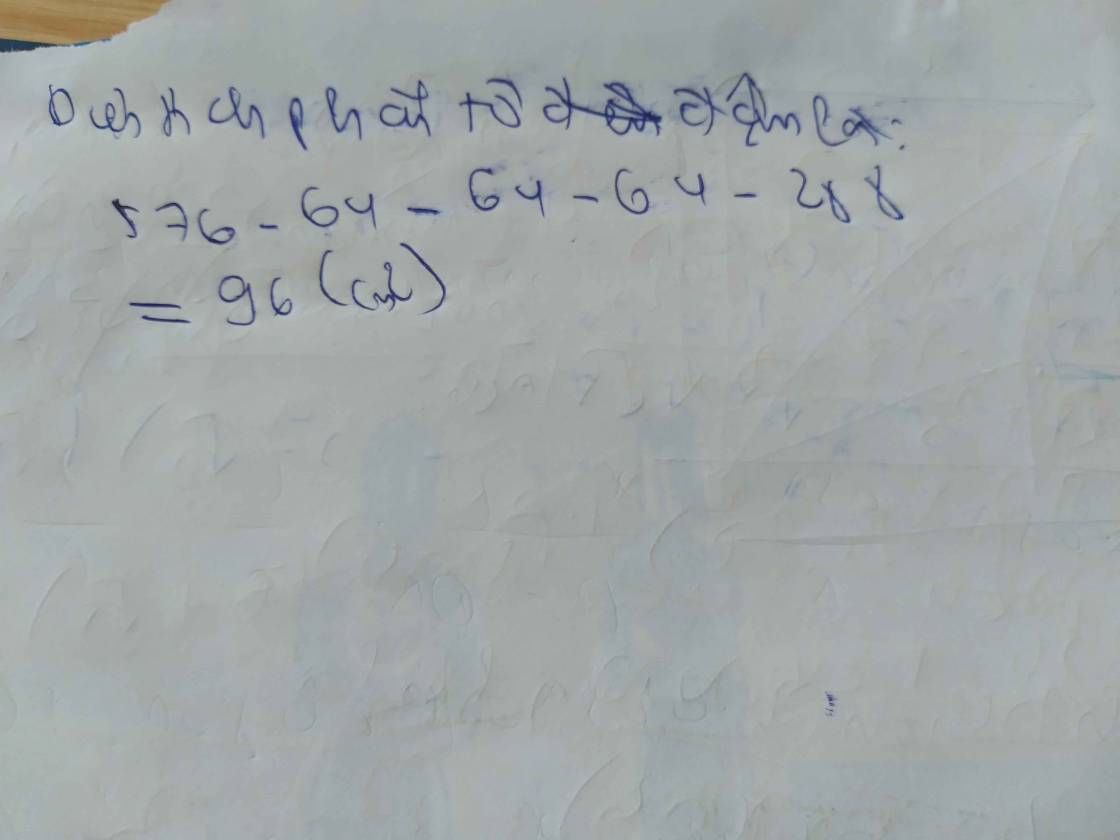 Diện tích phần tô đậm là:
576 - 64 - 64 - 64 - 288
= 96 (cm²)